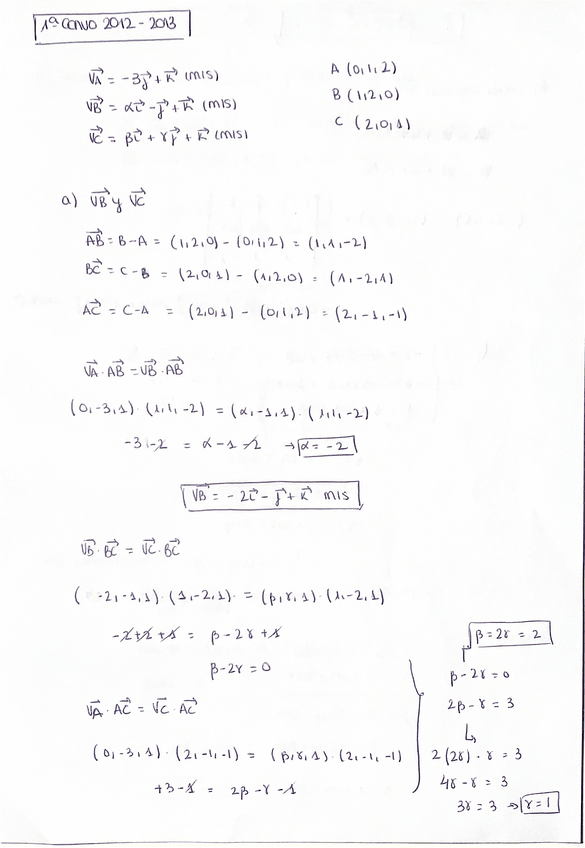 1ª CONVO 2012 - 2013
VA = -3j + k (m/s)
A (0,1,2)
VB = αi - j + k (m/s)
B (1,2,0)
VC = βi + γj + k (m/s)
C (2,0,1)
a) VB y VC
AB = B-A = (1,2,0) - (0,1,2) = (1,1,-2)
BC = C-B = (2,0,1) - (1,2,0) = (1,-2,1)
AC = C-A = (2,0,1) - (0,1,2) = (2,-1,-1)
VA · AB = VB · AB
(0,-3,1) · (1,1,-2) = (α,-1,1) · (1,1,-2)
-3-2 = α-1-2 → α = -2
VB = -2i - j + k m/s
VB · BC = VC · BC
(-2,-1,1) · (1,-2,1) = (β,γ,1) · (1,-2,1)
-2+2+1 = β-2γ+1
β-2γ=0
VA · AC = VC · AC
(0,-3,1) · (2,-1,-1) = (β,γ,1) · (2,-1,-1)
+3-1 = 2β-γ-1
β=2γ = 2
β-2γ=0
2β-γ = 3
2(2γ) - γ = 3
4γ-γ = 3
3γ=3 → γ=1